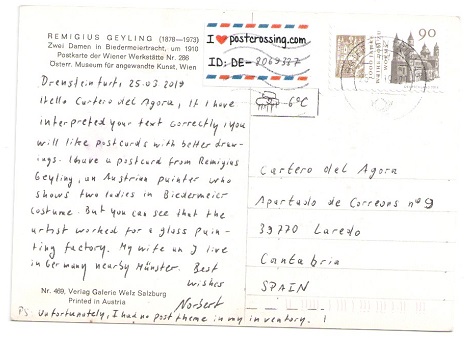 REMIGIUS GEYLING (1878—1973)
Zwei Damen in Biedermeiertracht, um 1910
Postkarte der Wiener Werkstätte Nr. 286
Österr. Museum für angewandte Kunst, Wien
Drensteinfurt, 25.03 2019
Hello Cartero del Agora, If I have
interpreted your text correctly, you
will like postcards with better draw-
ings. I have a postcard from Remigius
Geyling, an Austrian painter who
shows two ladies in Biedermeier
costume. But you can see that the
artist worked for a glass pain-
ting factory. My wife an I live
in Germany nearby Münster. Best
wishes
Norbert
Nr. 469, Verlag Galerie Welz Salzburg
Printed in Austria
Ps. Unfortunately, I had no post theme in my inventory. !
I ♥ postcrossing.com
ID: DE-
90
6°C
Cartero del Agora
Apartado de Correos nº 9
39770 Laredo
Cantabria
SPAIN